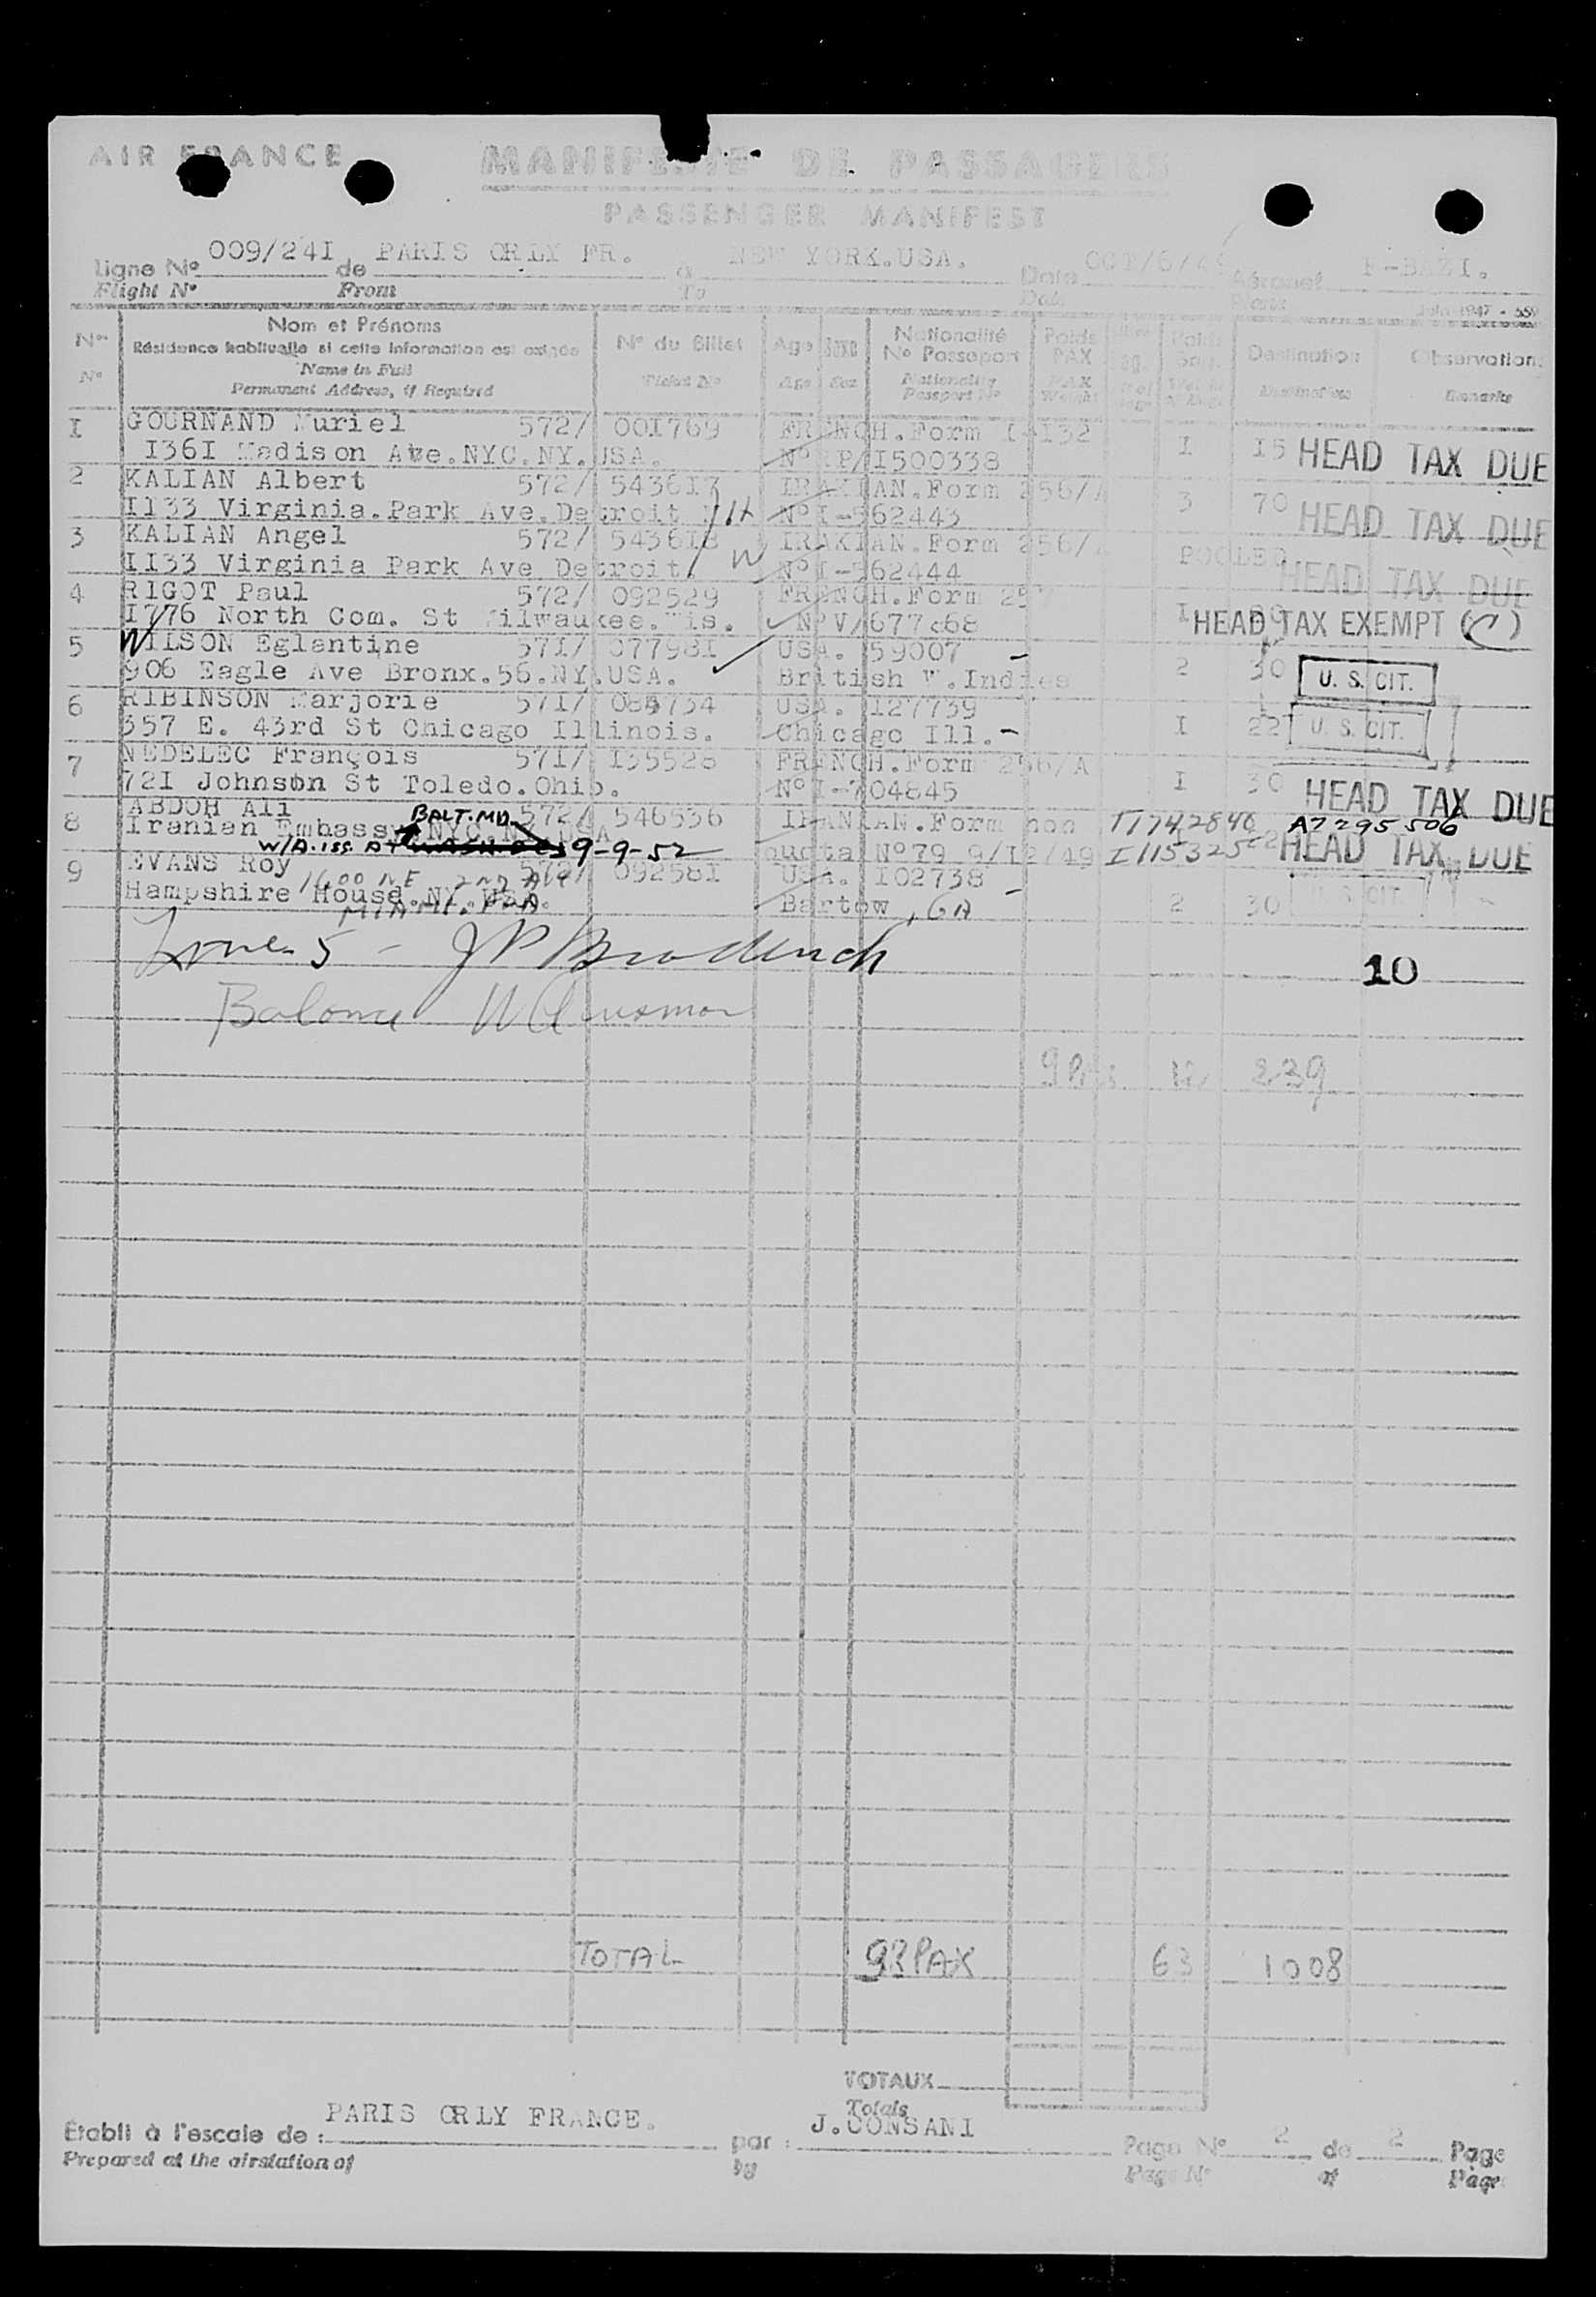 AIR FRANCE
MANIFESTE DE PASSAGERS
PASSENGER MANIFEST
Ligne N° 009/24I de PARIS ORLY FR. à NEW YORK.USA. Date OCT/6/49 Aéronef F-BAZI.
Flight N° From To Date
Juin 1947 - 559
N° Nom et Prénoms N° du Billet Age Sexe Nationalité Poids Destination Observations
Résidence habituelle si cette information est exigée N° Passeport PAX
N° Name in Full Ticket N° Age Sex Nationality PAX Destination Remarks
Permanent Address, if Required Passport N° Weight
I GOURNAND Muriel 572/ 00I769 FRENCH.Form I-I32
I36I Madison Ave.NYC.NY.USA. N° RP/I500338 I I5 HEAD TAX DUE
2 KALIAN Albert 572/ 5436I7 IRAKIAN.Form 256/A
II33 Virginia.Park Ave.Detroit N° I-562443 3 70 HEAD TAX DUE
3 KALIAN Angel 572/ 5436I8 IRAKIAN.Form 256/A
II33 Virginia Park Ave Detroit. W N° I-562444 POOLED HEAD TAX DUE
4 RIGOT Paul 572/ 092529 FRENCH.Form 257
I776 North Com. St Milwaukee.Wis. N° V/677868 I HEAD TAX EXEMPT (C)
5 WILSON Eglantine 57I/ 07798I USA. 59007 -
906 Eagle Ave Bronx.56.NY.USA. British W.Indies 2 30 U. S. CIT.
6 RIBINSON Marjorie 57I/ 084734 USA. I27739
557 E. 43rd St Chicago Illinois. Chicago Ill.- I 22 U. S. CIT.
7 NEDELEC François 57I/ I35528 FRENCH.Form 256/A
72I Johnson St Toledo.Ohio. N° I-704845 I 30 HEAD TAX DUE
8 ABDOH Ali BALT.MD. 572/ 546536 IRANIAN.Form non T1742840 A7295506
Iranian Embassy NYC.NY.USA quota N°79 9/I2/49 I1153252 HEAD TAX DUE
W/A. iss. AT 9-9-52
9 EVANS Roy 572/ 09258I USA. I02738
1600 NE 2ND AVE
Hampshire House.NY.USA. Bartow, GA - 2 30 U. S. CIT.
MIAMI. FLA.
10
239
TOTAL 93 PAX 63 1008
TOTAUX
Totals
Établi à l'escale de : PARIS ORLY FRANCE. par : J.CONSANI Page N° 2 de 2 Page
Prepared at the airstation of by Page N° of Page